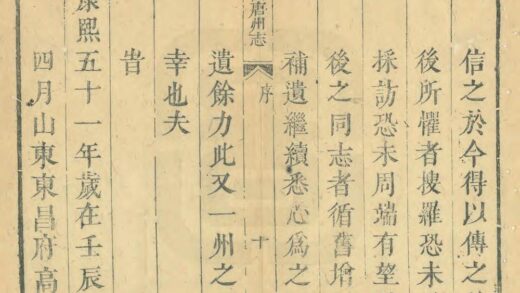 信之於今得以傳之
後所懼者搜羅恐未
採訪恐未周端有望
後之同志者循舊增
補遺繼續悉心爲之
唐州志
序
十
遺餘力此又一州之
幸也夫
旹
康熙五十一年歲在壬辰
四月山東東昌府高